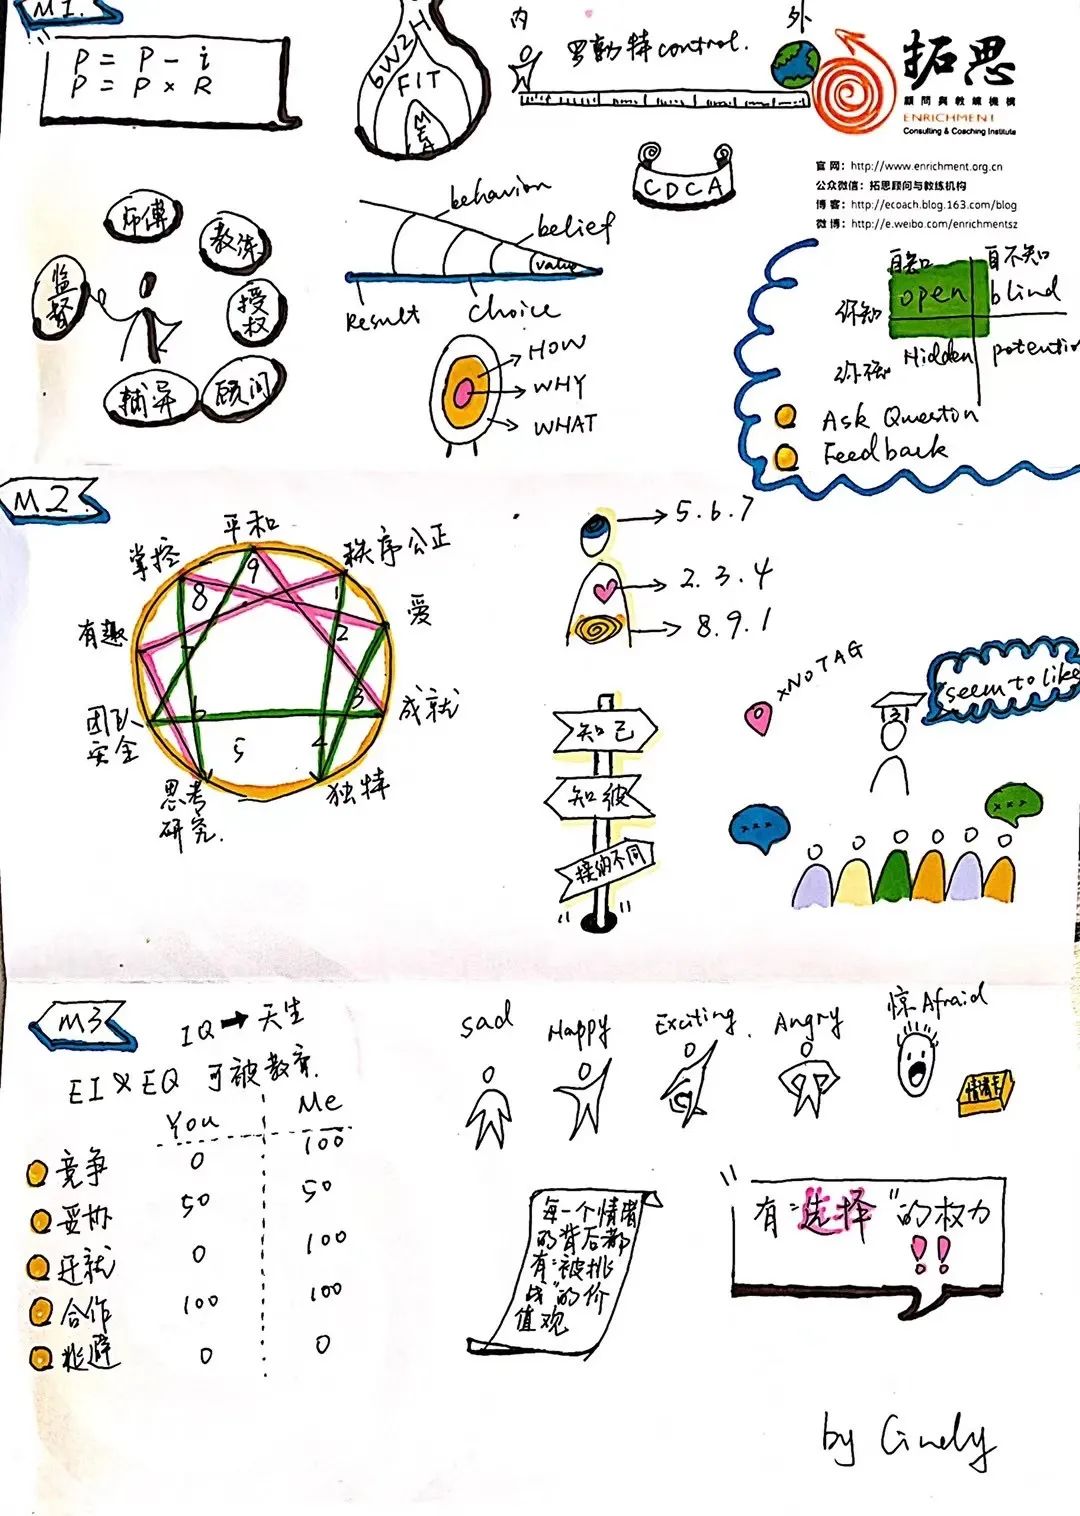 M1.
P = P - i
P = P × R
6W2H
FIT
MEA
内
外
罗勃特control.
拓思
顧問與教練機構
ENRICHMENT
Consulting & Coaching Institute
官 网：http://www.enrichment.org.cn
公众微信：拓思顾问与教练机构
博 客：http://ecoach.blog.163.com/blog
微 博：http://e.weibo.com/enrichmentsz
CDCA
师傅
教练
监督
授权
辅导
顾问
behavion
belief
value
Result
Choice
HOW
WHY
WHAT
自知
自不知
你知
open
blind
你不知
Hidden
potentia
Ask Queston
Feedback
M2.
平和
掌控
秩序公正
有趣
爱
团队
安全
成就
思考
研究.
独特
9
8
1
7
2
6
3
5
4
5.6.7
2.3.4
8.9.1
知己
知彼
接纳不同
×NO TAG
seem to like
×××
×××
M3
IQ → 天生
EI × EQ 可被教育.
You Me
竞争 0 100
妥协 50 50
迁就 0 100
合作 100 100
逃避 0 0
sad
Happy
Exciting.
Angry
惊 Afraid
情绪卡
每一个情绪
的背后都
有“被挑
战”的价
值观
有“选择”的权力
!!
by Cindy